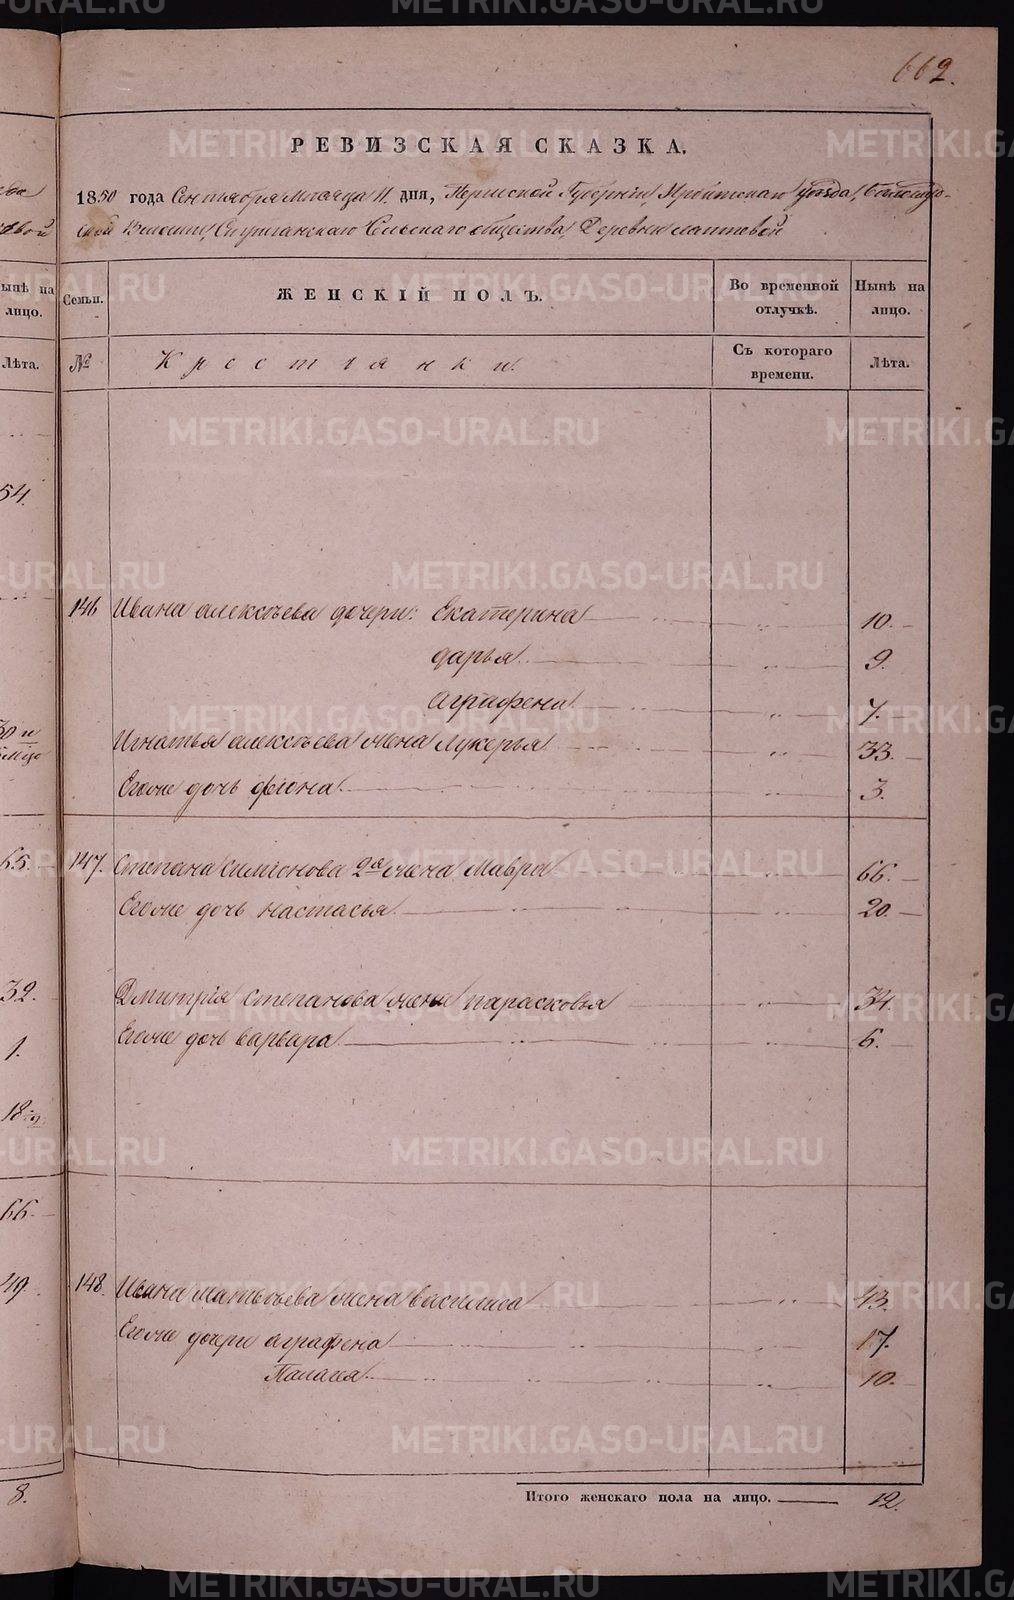 662.
РЕВИЗСКАЯ СКАЗКА.
1850 года Сентября Месяца 11. дня, Пермской Губерніи Ирбитскаго уѣзда,
ской Волости, Сельскаго общества, Деревни Лаптевой
Семьи. ЖЕНСКІЙ ПОЛЪ. Во временной отлучкѣ. Нынѣ на лицо.
№ Крестьянки. Съ котораго времени. Лѣта.
146 Ивана алексѣева дочери: Екатерина 10.
дарья 9.
Аграфена 7.
Игнатья алексѣева жена Лукерья 33.
Егоже дочь фіона 3.
147. Степана Симіонова 2я жена Мавра 66.
Егоже дочь настасья 20.
Дмитрія степанова жена парасковья 34.
Егоже дочь варвара 6.
148. Ивана Матвѣева жена василиса 43.
Егоже дочери аграфена 17.
Палагея 10.
Итого женскаго пола на лицо. 12.
ынѣ на
лицо.
Лѣта.
54.
65.
32.
1.
18
66.
49.
8.
METRIKI.GASO-URAL.RU